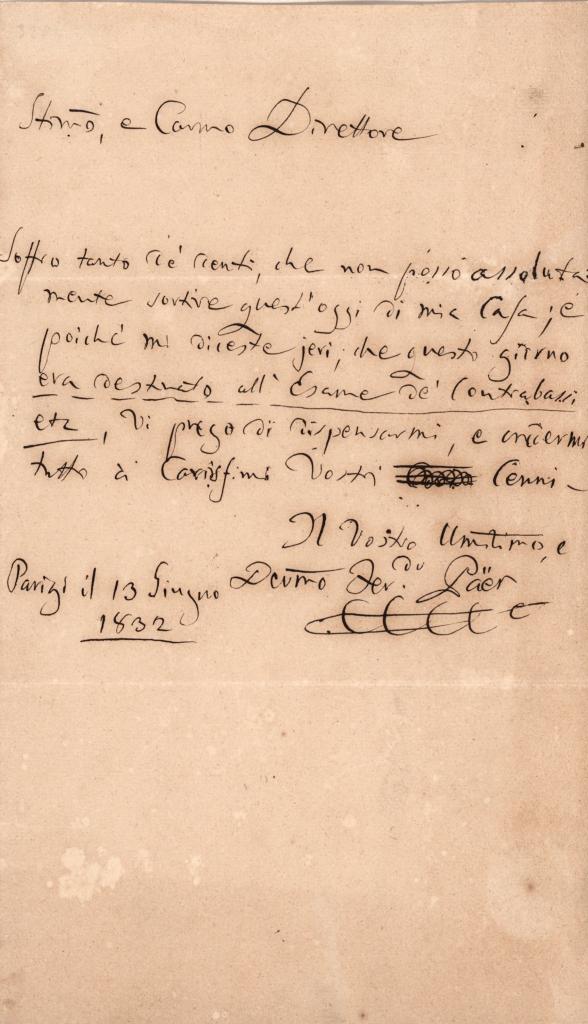 Stimo, e Carmo Direttore
Soffro tanto de' denti, che non posso assoluta
mente sortire quest'oggi di mia Casa; e
poiché mi diceste jeri, che questo giorno
era destinato all' Esame de' Contrabassi
etz, Vi prego di dispensarmi, e credermi
tutto ai Carissimi Vostri Cenni –
Il Vostro Umilimo, e
Devmo Fer.do Paër
Parigi il 13 Giugno
1832